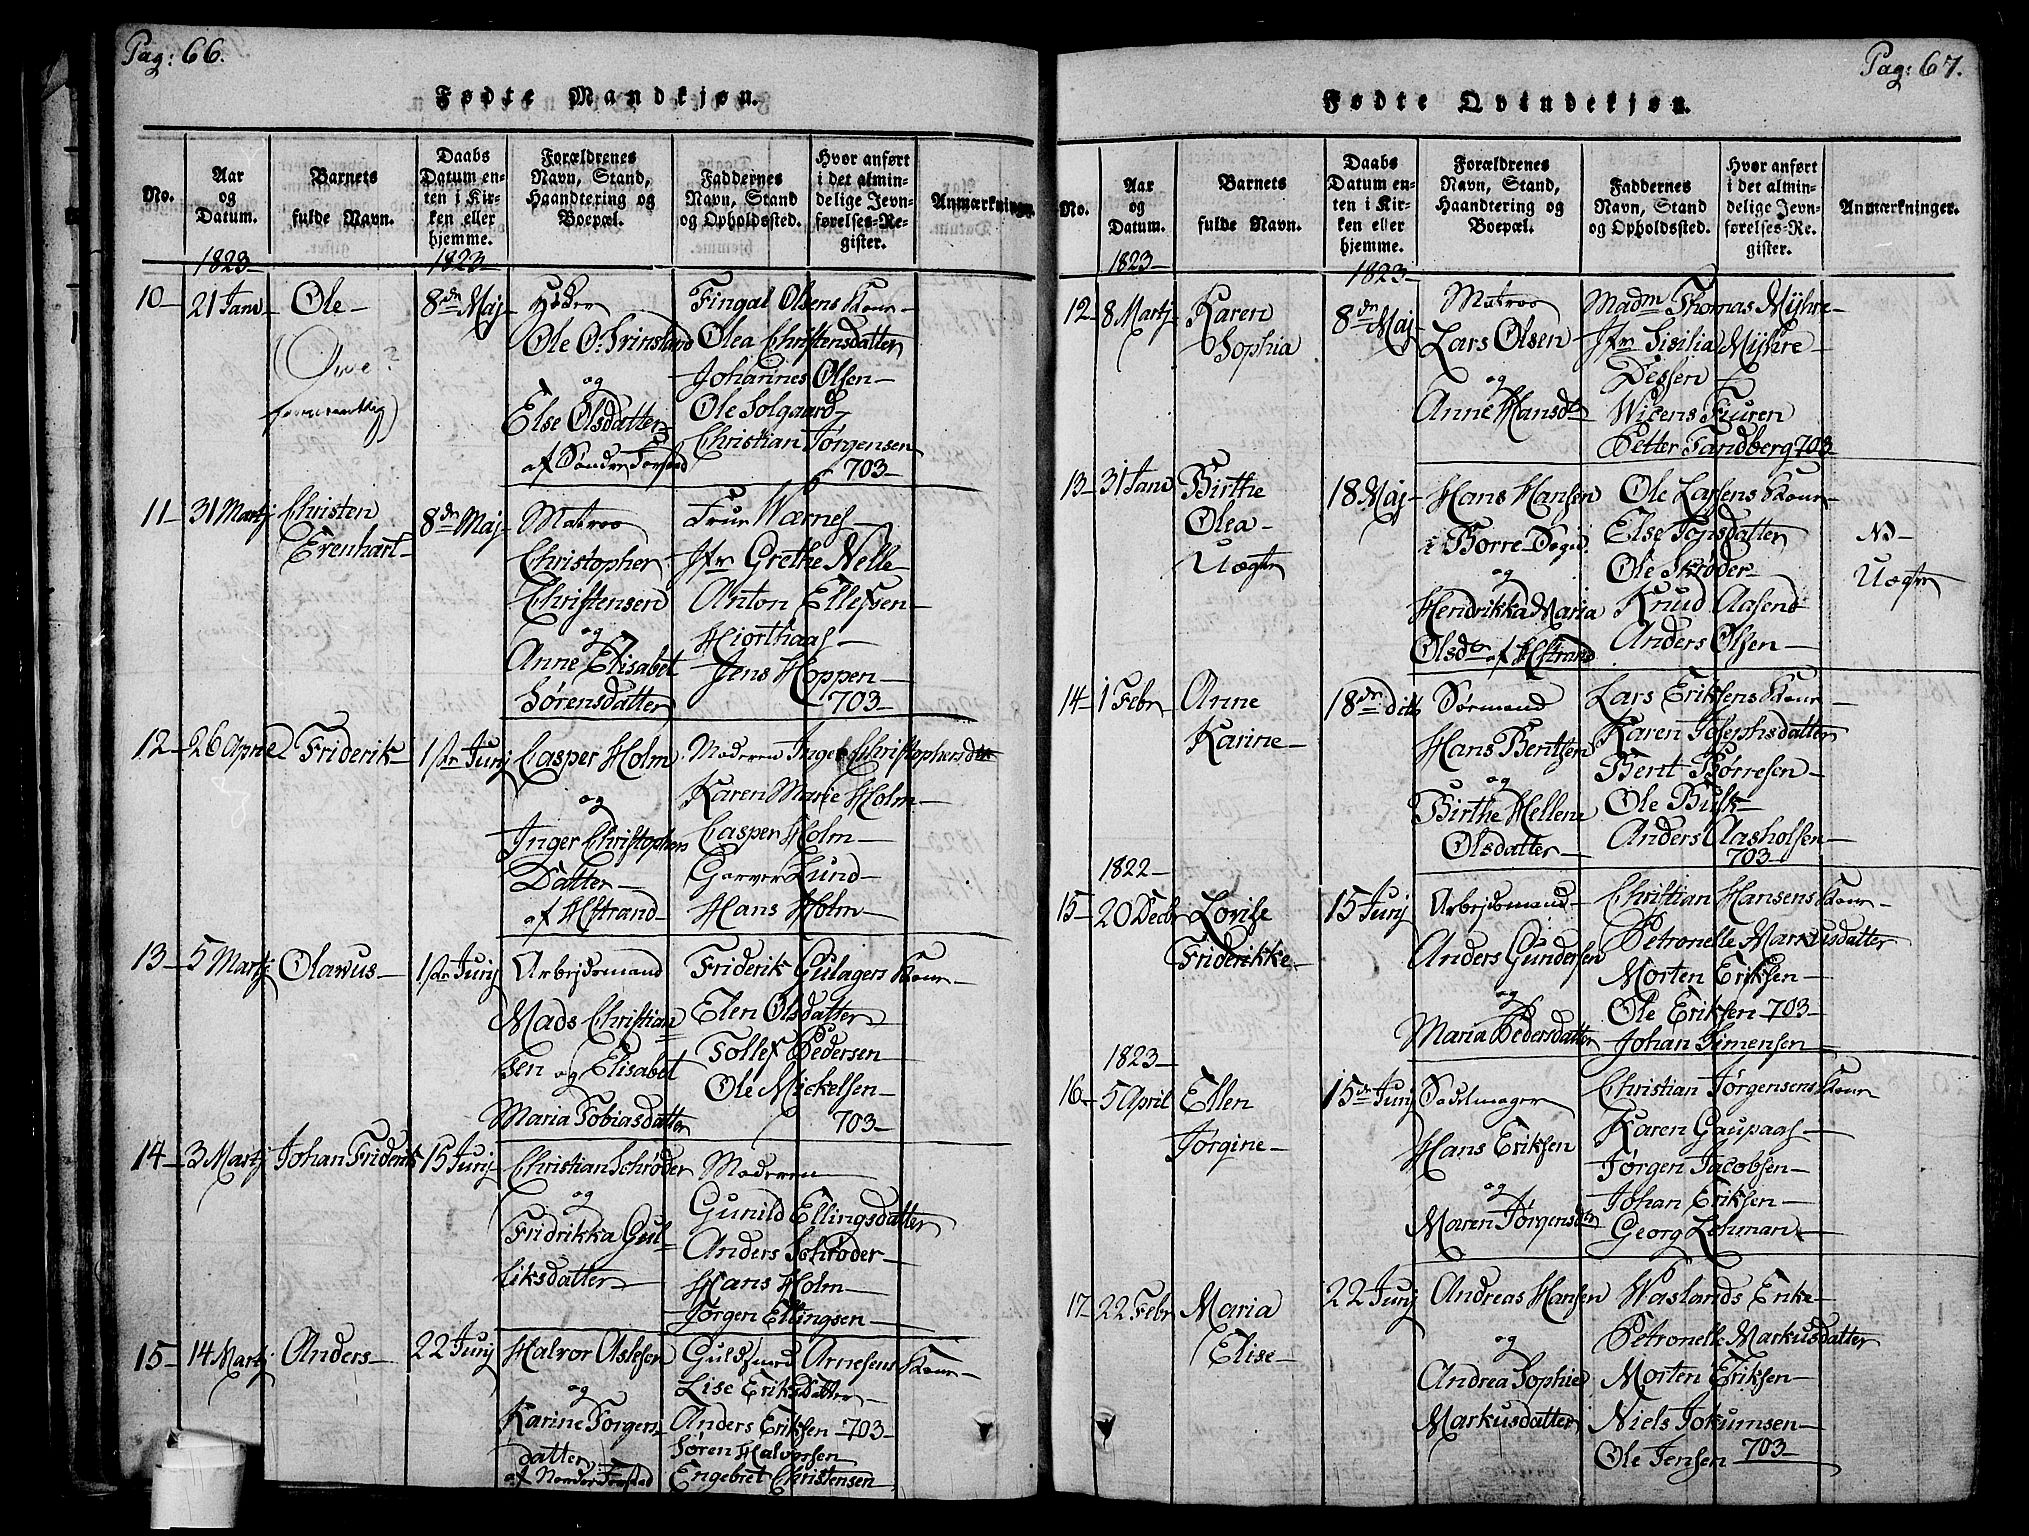 Pag: 66.
Fødte Mandkjøn.
No.
Aar og Datum.
Barnets fulde Navn.
Daabs Datum enten i Kirken eller hjemme.
Forældrenes Navn, Stand, Haandtering og Boepæl.
Faddernes Navn, Stand og Opholdssted.
Hvor anført i det almindelige Jevnførelses-Register.
Anmærkninger
1823-
1823-
10- 21 Janv Ole- 8de Maj-
Ole
og
Else Olsdatter
af Sønder
Fingal Olsens Kone-
Olea Christensdatter
Johannes Olsen-
Ole Solgaard
Christian Jørgensen
703-
11- 31 Martj Christen
Erenhart-
8de Maj
Matros
Christopher
Christensen
og
Anne Elisabet
Sørensdatter
Frue Wærnes-
Jfr Grethe Nelle-
Anton Ellefsen-
Hjorthaas-
Jens Hoppen-
703-
12- 26 Friderik- 1ste Junj
Casper Holm
og
Inger Christophers
Datter-
af Hstrand-
Moderen Inger Christophersdtr
Karen Marie Holm-
Casper Holm-
Garver Lund-
Hans Holm-
13- 5 Martj Olawus- 1ste Junj
Arbejdsmand
Mads Christian
sen og Elisabet
Maria Tobiasdatter
Friderik Gulagers Kone-
Elen Olsdatter-
Tollef Pedersen
Ole Mickelsen-
703-
14- 3 Martj Johan Friderik 15 Junj
Christian Schrøder
og
Fridrikka Gul-
liksdatter-
Moderen-
Gunild Ellingsdatter
Anders Schrøder-
Hans Holm-
Jørgen Ellingsen-
15- 14 Martj Anders- 22 Junj
Halvor Aslesen
og
Karine Jørgens
datter
af
Arnesens Kone-
Lise Eriksdatter-
Anders Eriksen-703-
Søren Halvorsen
Engebret Christensen
Pag: 67.
Fødte Qvindekjøn.
No.
Aar og Datum.
Barnets fulde Navn.
Daabs Datum enten i Kirken eller hjemme.
Forældrenes Navn, Stand, Haandtering og Boepæl.
Faddernes Navn, Stand og Opholdssted.
Hvor anført i det almindelige Jevnførelses-Register.
Anmærkninger.
1823-
1823-
12- 8 Martj- Karen
Sophia
8de Maj
Matros
Lars Olsen-
og
Anne Hansdtr
Madm Thomas Myhre-
Jfr Sisilia Myhre-
Dessen-
Petter Tandberg 703-
13- 31 Janv Birthe
Olea-
Uægte
18 Maj-
Hans Hansen
i Borre
og
Hendrikka Maria
Olsdtr af Hstrand
Ole Larsens Kone-
Else
Ole Skrøder-
Knud Aasend
Anders Olsen-
NB-
Uægte
14- 1 Febr Anne
Karine-
18de dito
Sørmand
Hans Bentsen
og
Birthe Hellene
Olsdatter-
Lars Eriksens Kone-
Karen Josephsdatter
Bent Børresen-
Ole Busk-
Anders Aasholsen-
703-
1822-
15- 20 Decbr Lovise
Friderikke-
15 Junj
Arbejdsmand-
Anders Gundersen
og
Maria Pedersdatter
Christian Hansens Kone-
Petronelle Markusdatter
Morten Eriksen-
Ole Eriksen-703-
Johan Simensen-
1823-
16- 5 April Ellen
Jørgine-
15de Junj
Sadelmager
Hans Eriksen
og
Maren Jørgensdtr
Christian Jørgensens Kone-
Karen Gaupaas-
Jørgen Jacobsen-
Johan Eriksen-
Georg Lohman-
17- 22 Febr Maria
Elise-
22 Junj
Andreas Hansen
og
Andrea Sophie
Markusdatter
Waslands Enke-
Petronelle Markusdatter
Morten Eriksen-
Niels Jokumsen-
Ole Jensen 703-